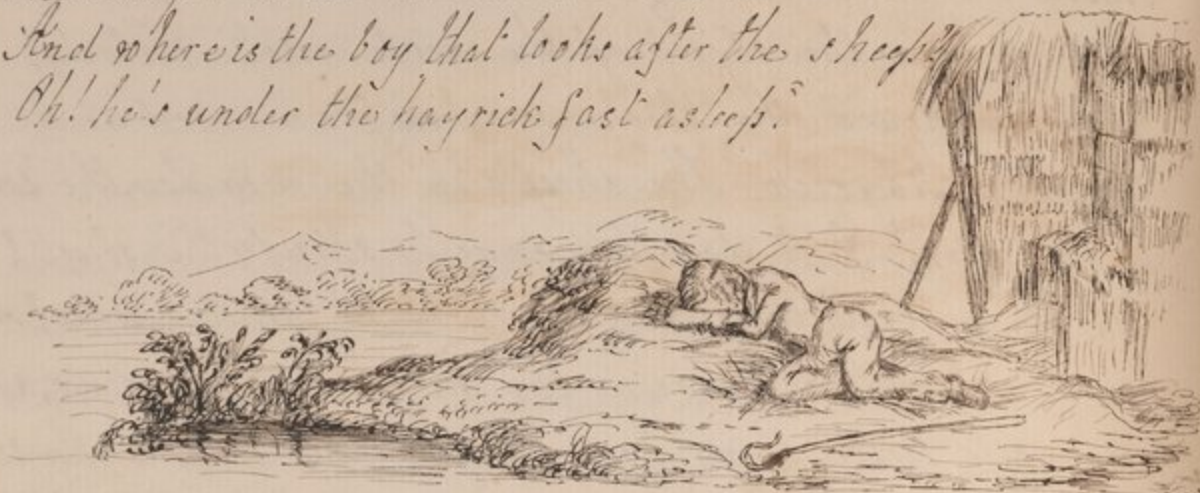 And where is the boy that looks after the sheep?
Oh! he's under the hayrick fast asleep."